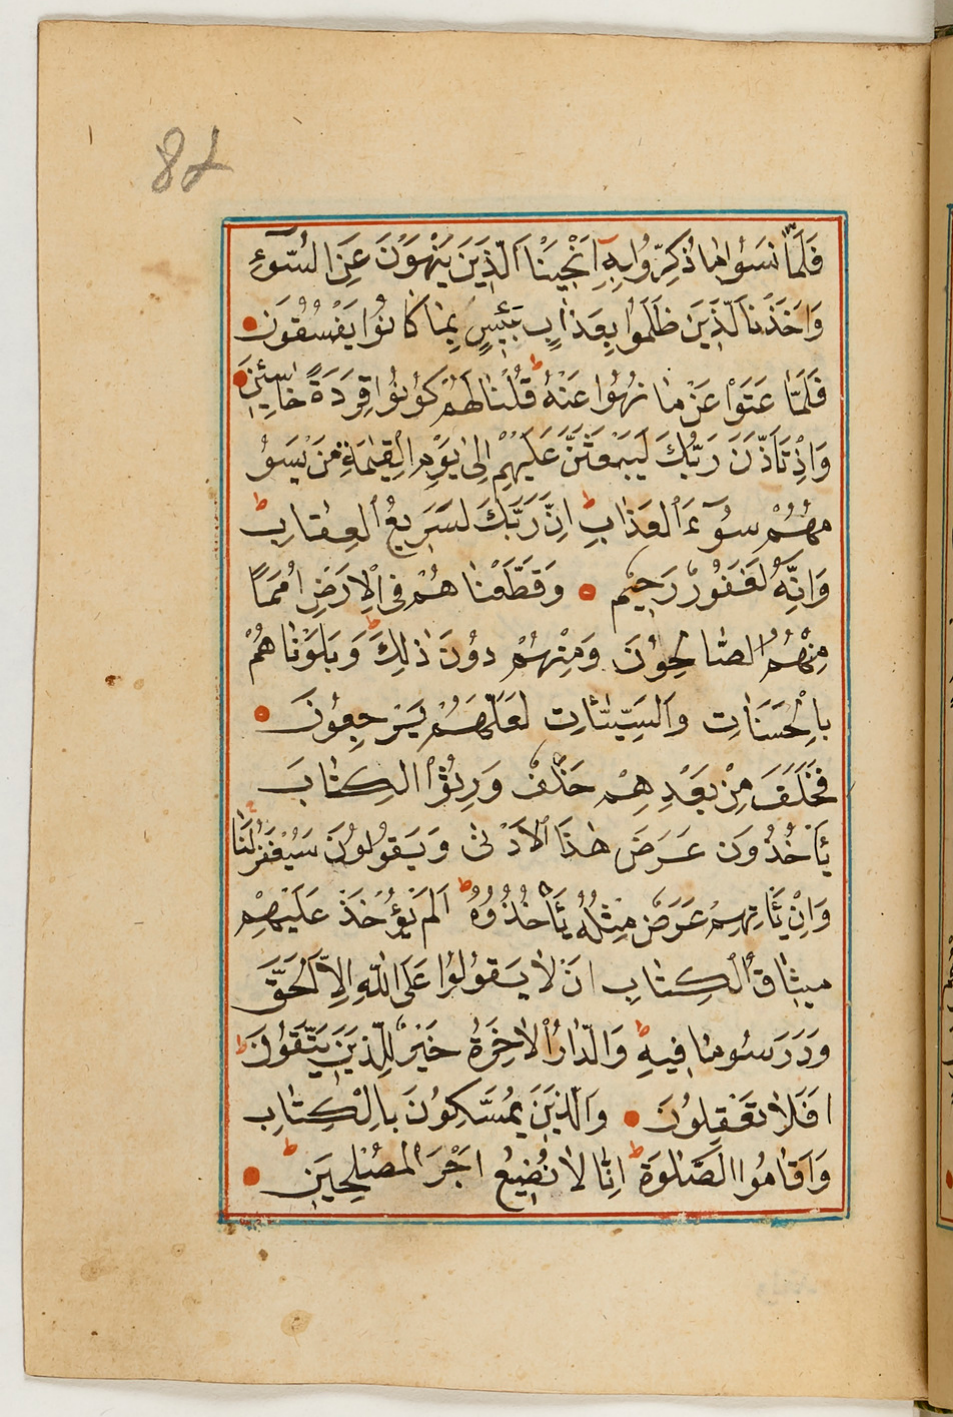 82
فَلَمَّا نَسُوا مَا ذُكِّرُوا بِهِ اَنْجَيْنَا الَّذِينَ يَنْهَوْنَ عَنِ السُّوٓءِ
وَاَخَذْنَا الَّذِينَ ظَلَمُوا بِعَذَابٍ بَئِيسٍ بِمَا كَانُوا يَفْسُقُونَ
فَلَمَّا عَتَوْا عَنْ مَا نُهُوا عَنْهُ ط قُلْنَا لَهُمْ كُونُوا قِرَدَةً خَاسِئِينَ
وَاِذْ تَاَذَّنَ رَبُّكَ لَيَبْعَثَنَّ عَلَيْهِمْ اِلٰى يَوْمِ الْقِيٰمَةِ مَنْ يَسُو
مُهُمْ سُوٓءَ الْعَذَابِ ط اِنَّ رَبَّكَ لَسَرِيعُ الْعِقَابِ ط
وَاِنَّهُ لَغَفُورٌ رَحِيمٌ وَقَطَّعْنَا هُمْ فِى الْاَرْضِ اُمَمًا
مِنْهُمُ الصَّالِحُونَ وَمِنْهُمْ دُونَ ذٰلِكَ ط وَبَلَوْنَاهُمْ
بِالْحَسَنَاتِ وَالسَّيِّئَاتِ لَعَلَّهُمْ يَرْجِعُونَ
فَخَلَفَ مِنْ بَعْدِهِمْ خَلْفٌ وَرِثُوا الْكِتَابَ
يَأْخُذُونَ عَرَضَ هٰذَا الْاَدْنٰى وَيَقُولُونَ سَيُغْفَرُ لَنَا
وَاِنْ يَأْتِهِمْ عَرَضٌ مِثْلُهُ يَأْخُذُوهُ ط اَلَمْ يُؤْخَذْ عَلَيْهِمْ
مِيثَاقُ الْكِتَابِ اَنْ لَا يَقُولُوا عَلَى اللّٰهِ اِلَّا الْحَقَّ
وَدَرَسُوا مَا فِيهِ ط وَالدَّارُ الْاٰخِرَةُ خَيْرٌ لِلَّذِينَ يَتَّقُونَ ط
اَفَلَا تَعْقِلُونَ وَالَّذِينَ يُمَسِّكُونَ بِالْكِتَابِ
وَاَقَامُوا الصَّلٰوةَ ط اِنَّا لَا نُضِيعُ اَجْرَ الْمُصْلِحِينَ ط